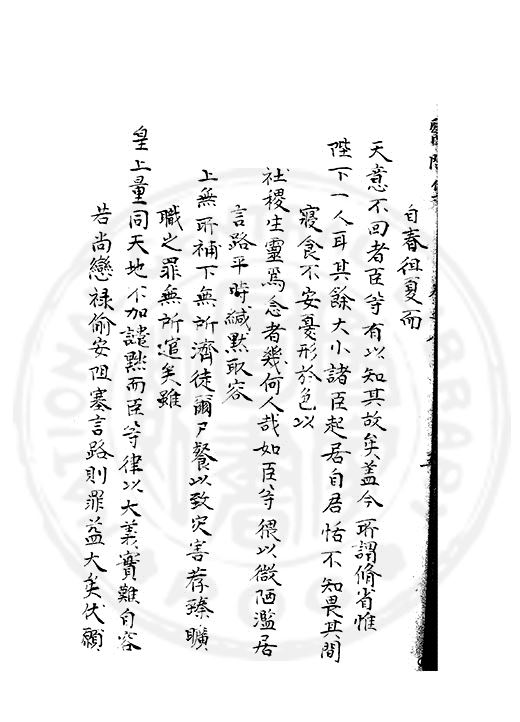 自春徂夏而
天意不回者臣等有以知其故矣盖今所謂脩省惟
陛下一人耳其餘大小諸臣起居自君恬不知畏其間
寢食不安憂形於色以
社稷生靈為念者幾何人哉如臣等猥以微陋濫居
言路平時緘默取容
上無所補下無所濟徒爾尸餐以致灾害荐臻曠
職之罪無所逭矣雖
皇上量同天地不加譴黜而臣等律以大義實難自容
若尚戀禄偷安阻塞言路則罪益大矣伏願